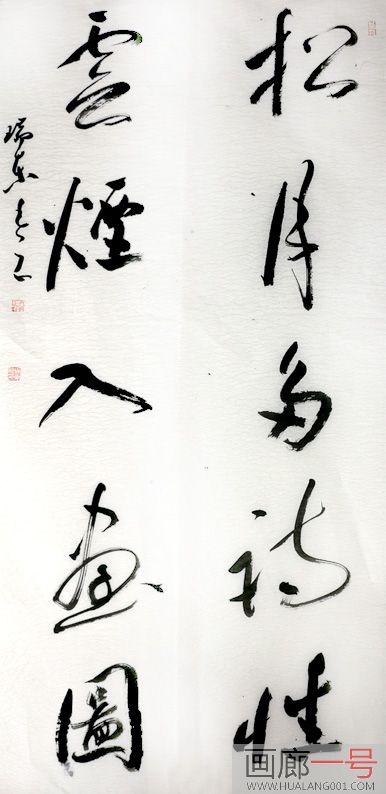 松月多詩性
雲煙入畫圖
瑞東
画廊一号
WWW.HUALANG001.COM